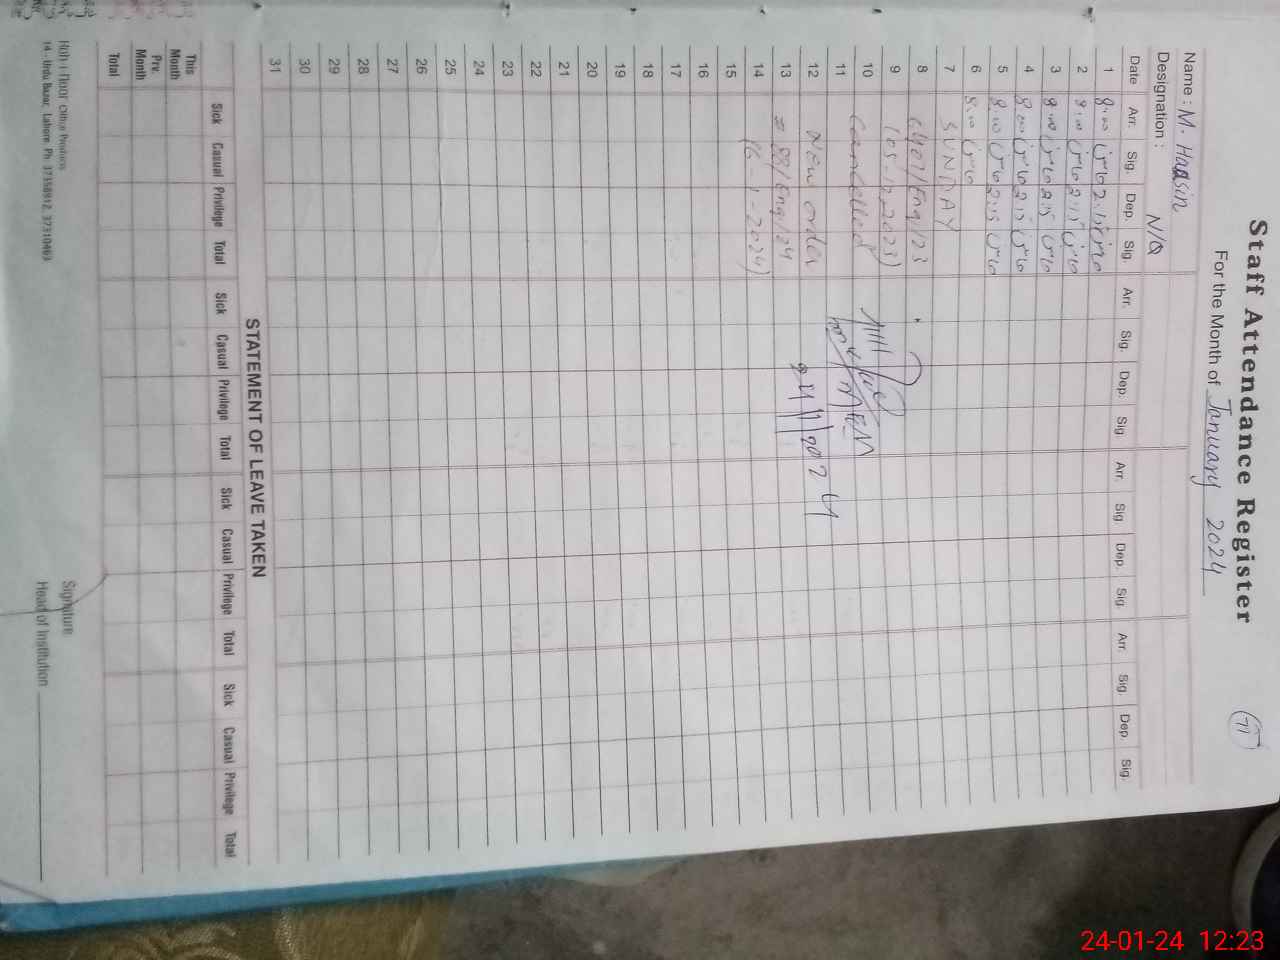 Staff Attendance Register
For the Month of January 2024
Name : M. Haasin
Designation : N/Q
Date Arr. Sig. Dep. Sig. Arr. Sig. Dep. Sig. Arr. Sig. Dep. Sig. Arr. Sig. Dep. Sig.
1 8:00 2:15
2 8:00 2:15
3 8:00 2:15
4 8:00 2:15
5 8:00 2:15
6 8:00
7 SUNDAY
8 /Eng/23
9 (05-12-2023)
10 cancelled
11
12 New order
13 # 88/Eng/24
14 -2024)
15
16
17
18
19
20
21
22
23
24
25
26
27
28
29
30
31
24/1/2024
STATEMENT OF LEAVE TAKEN
Sick Casual Privilege Total Sick Casual Privilege Total Sick Casual Privilege Total Sick Casual Privilege Total
This Month
Prv. Month
Total
Signature
Head of Institution
Office Products
14 - Urdu Bazar, Lahore. Ph: 37358912, 37310463
24-01-24 12:23